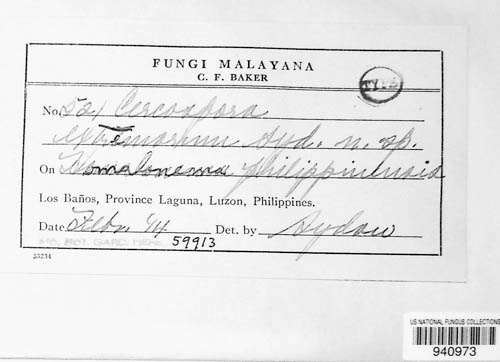 FUNGI MALAYANA
C. F. BAKER
TYPE
No. 521 Cercospora
extremorum Syd. n. sp.
On Homalonema philippinensis
Los Baños, Province Laguna, Luzon, Philippines.
Date Feb. 14 Det. by Sydow
MO. BOT. GARD. HERB. 59913
53234
US NATIONAL FUNGUS COLLECTIONS
940973